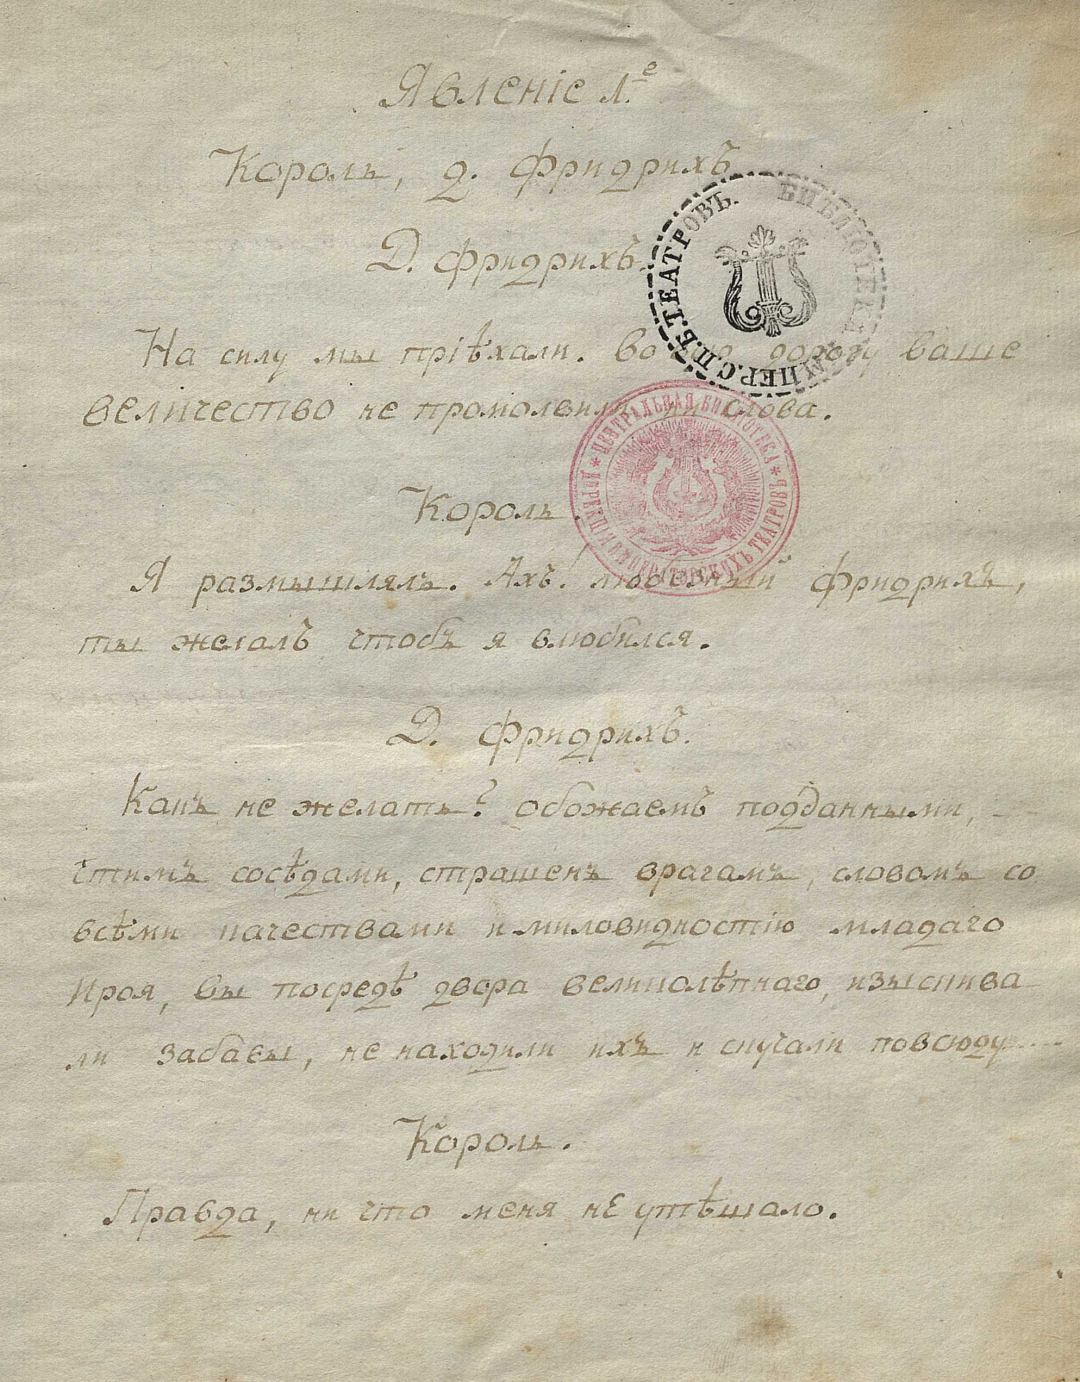 Явленіе 1.е
Король, д. Фридрихъ
Д. Фридрихъ.
На силу мы пріѣхали. во всю дорогу ваше
величество не промолвили ни слова.
Король.
Я размышлялъ. Ахъ! любезный Фридрихъ,
ты желалъ чтобъ я влюбился.
Д. Фридрихъ.
Какъ не желать? обожаемъ подданными,
чтимъ сосѣдами, страшенъ врагамъ, словомъ со
всѣми качествами и миловидностію младаго
Ироя, вы посредѣ двора великолѣпнаго, изыскива
ли забавы, не находили ихъ и скучали повсюду....
Король.
Правда, ни что меня не утѣшало.
БИБЛІОТЕКА ИМПЕР. С.П.Б. ТЕАТРОВЪ.
ЦЕНТРАЛЬНАЯ БИБЛІОТЕКА * ИМПЕРАТОРСКИХЪ ТЕАТРОВЪ *